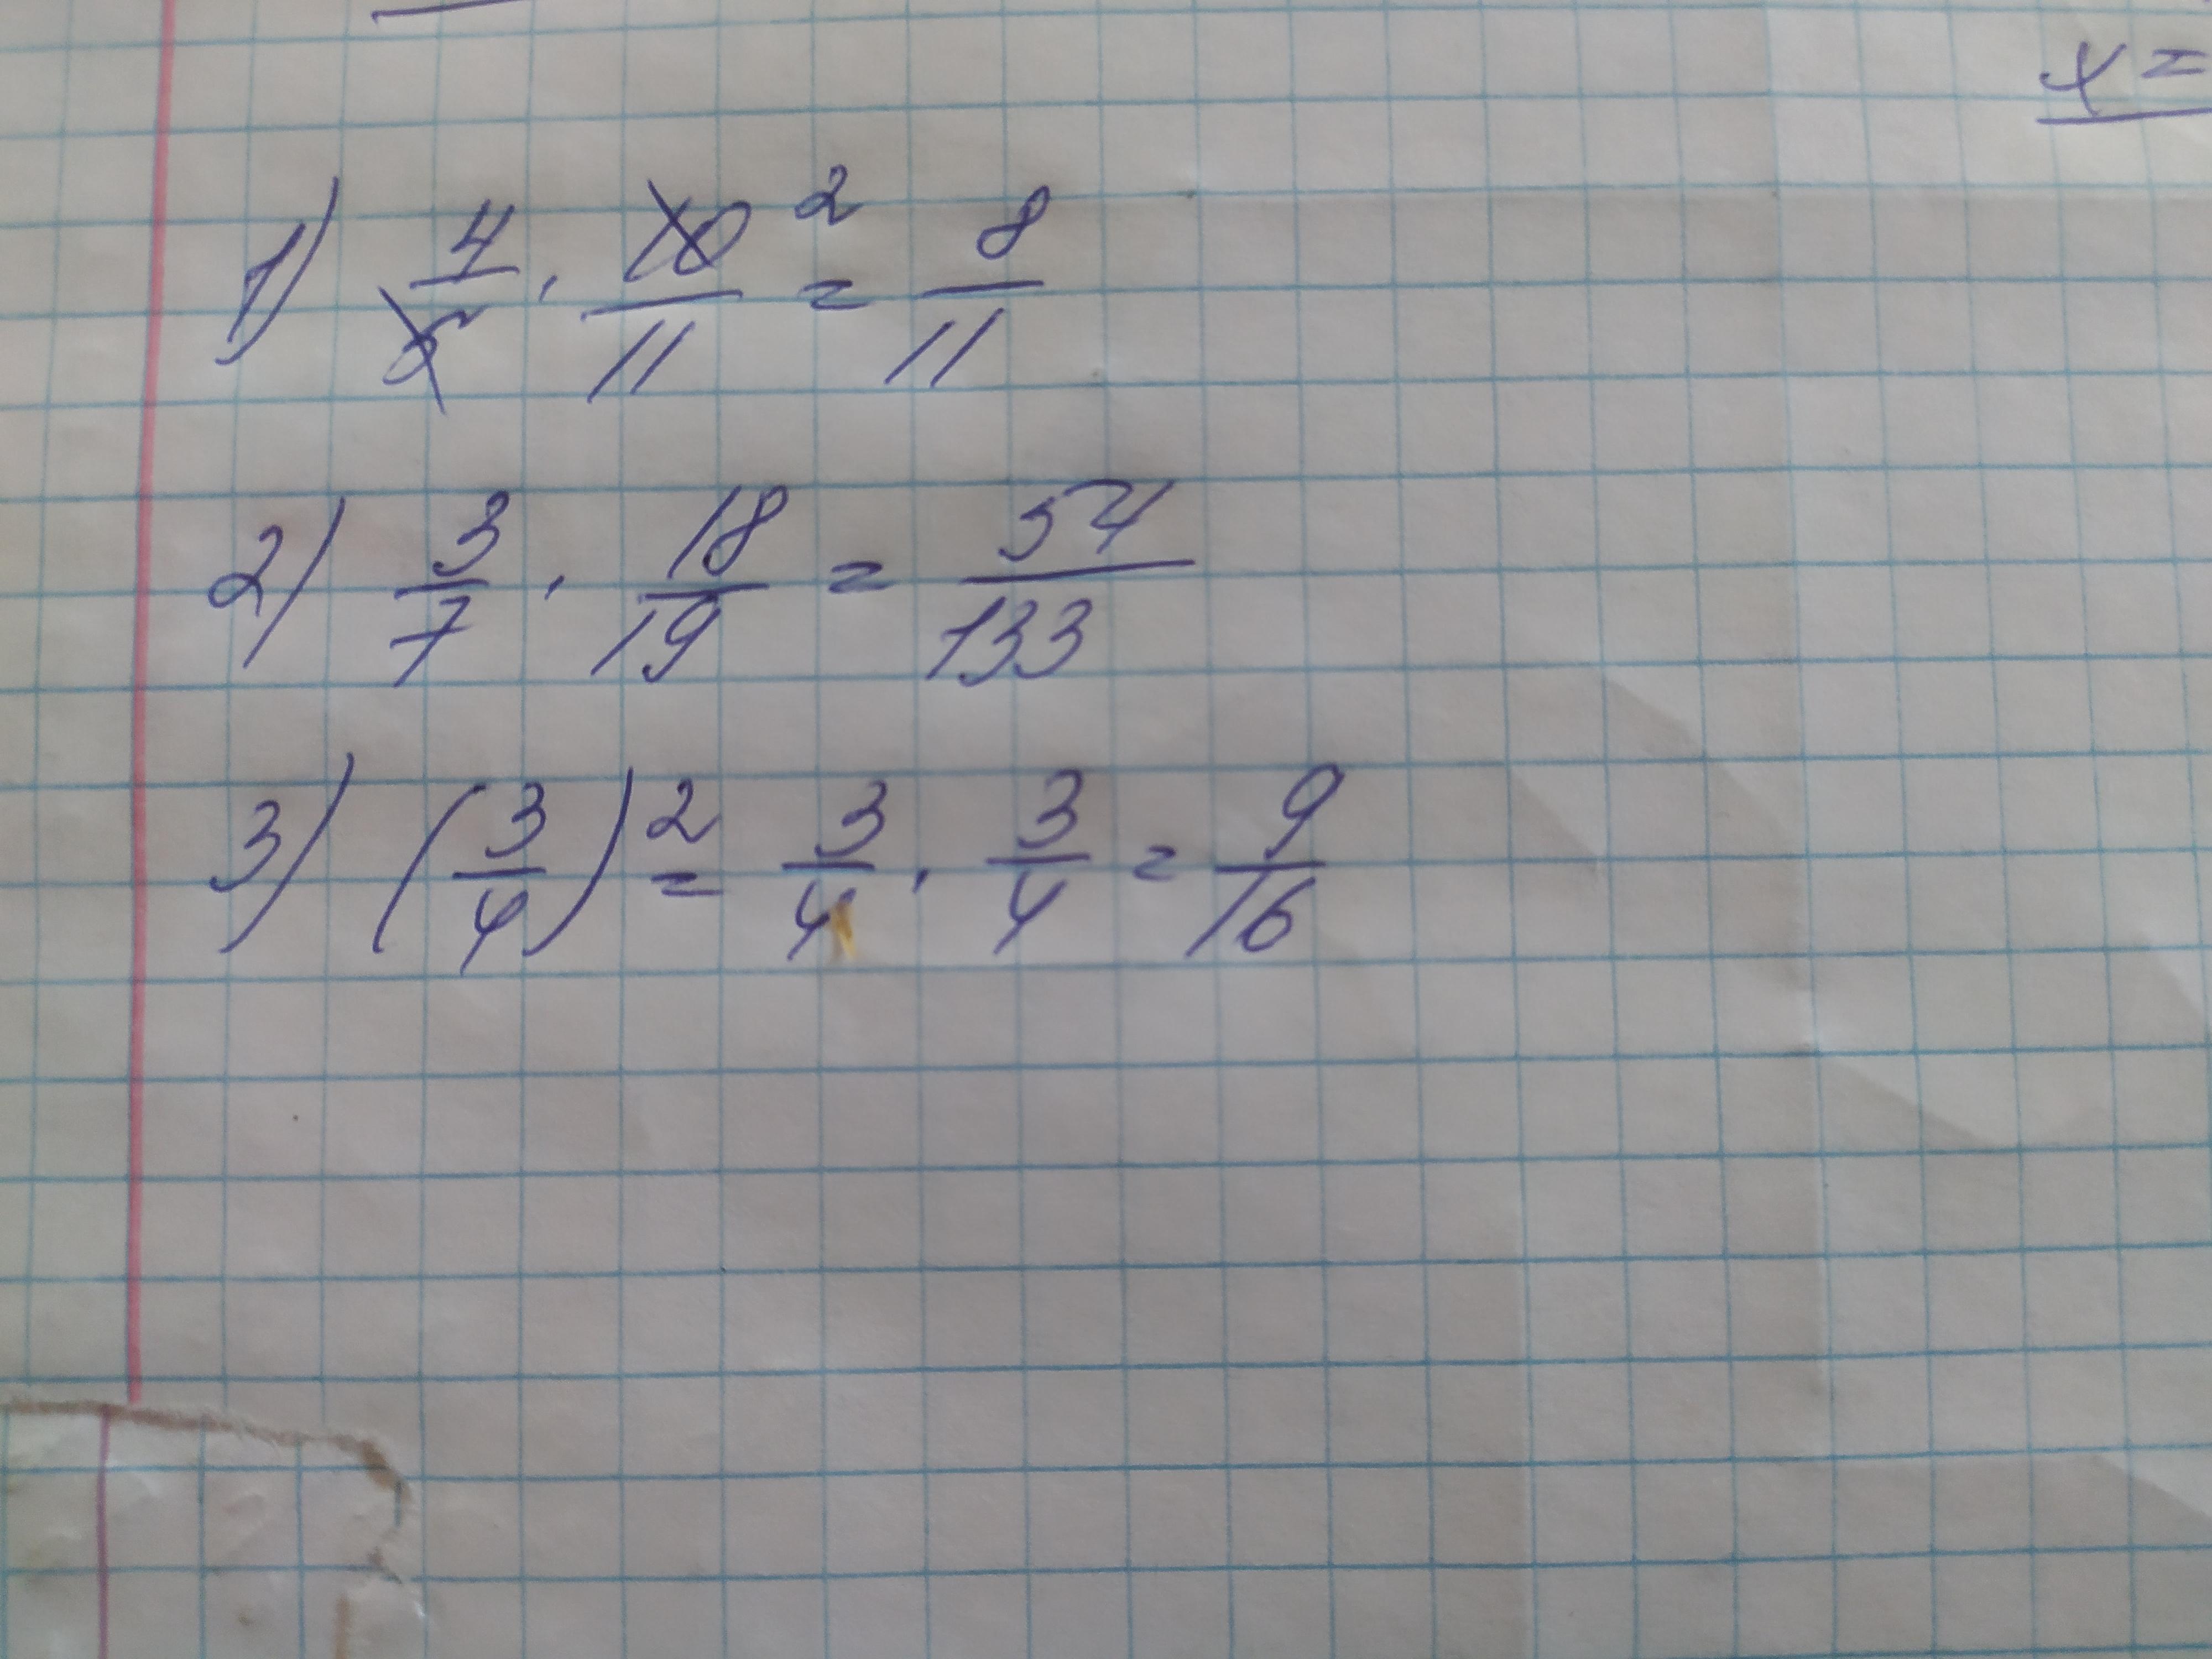 x =
1) 4/5 · 10/11 2 = 8/11
2) 3/7 · 18/19 = 54/133
3) (3/4)² = 3/4 · 3/4 = 9/16